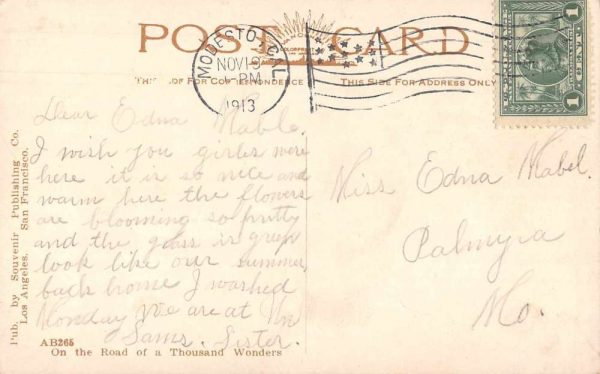 POST CARD
THIS SIDE FOR ADDRESS ONLY
MODESTO, CAL.
NOV 19
PM
1913
1 CENT 1
Dear Edna Mable.
I wish you girls were
here it is so nice and
warm here the flowers
are blooming so pretty
and the grass is green
look like our summer
back home I washed
Monday We are at
Sams. Sister.
Miss Edna Mabel.
Palmyra
Mo.
Pub. by Souvenir Publishing Co.
Los Angeles. San Francisco.
AB265
On the Road of a Thousand Wonders